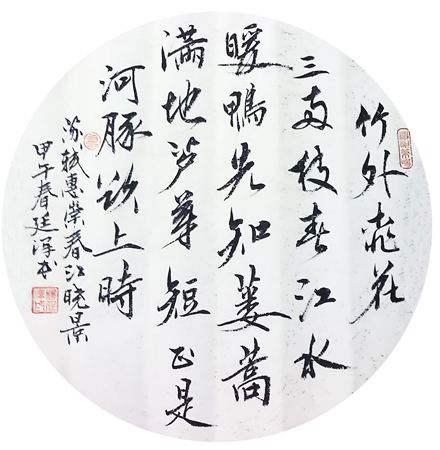 竹外桃花
三两枝春江水
暖鴨先知蔞蒿
滿地芦芽短正是
河豚欲上時
苏轼惠崇春江晓景
甲午春廷泽书